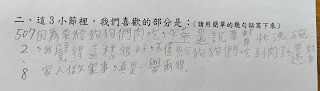 二、這3小節裡，我們喜歡的部分是：(請用簡單的幾句話寫下來)
507因為要給狗狗們肉吃，今天還說要幫忙洗碗
2，我覺得這樣很好，不僅給狗狗們吃到肉了，還幫
8 家人做家事，真是一舉兩得。